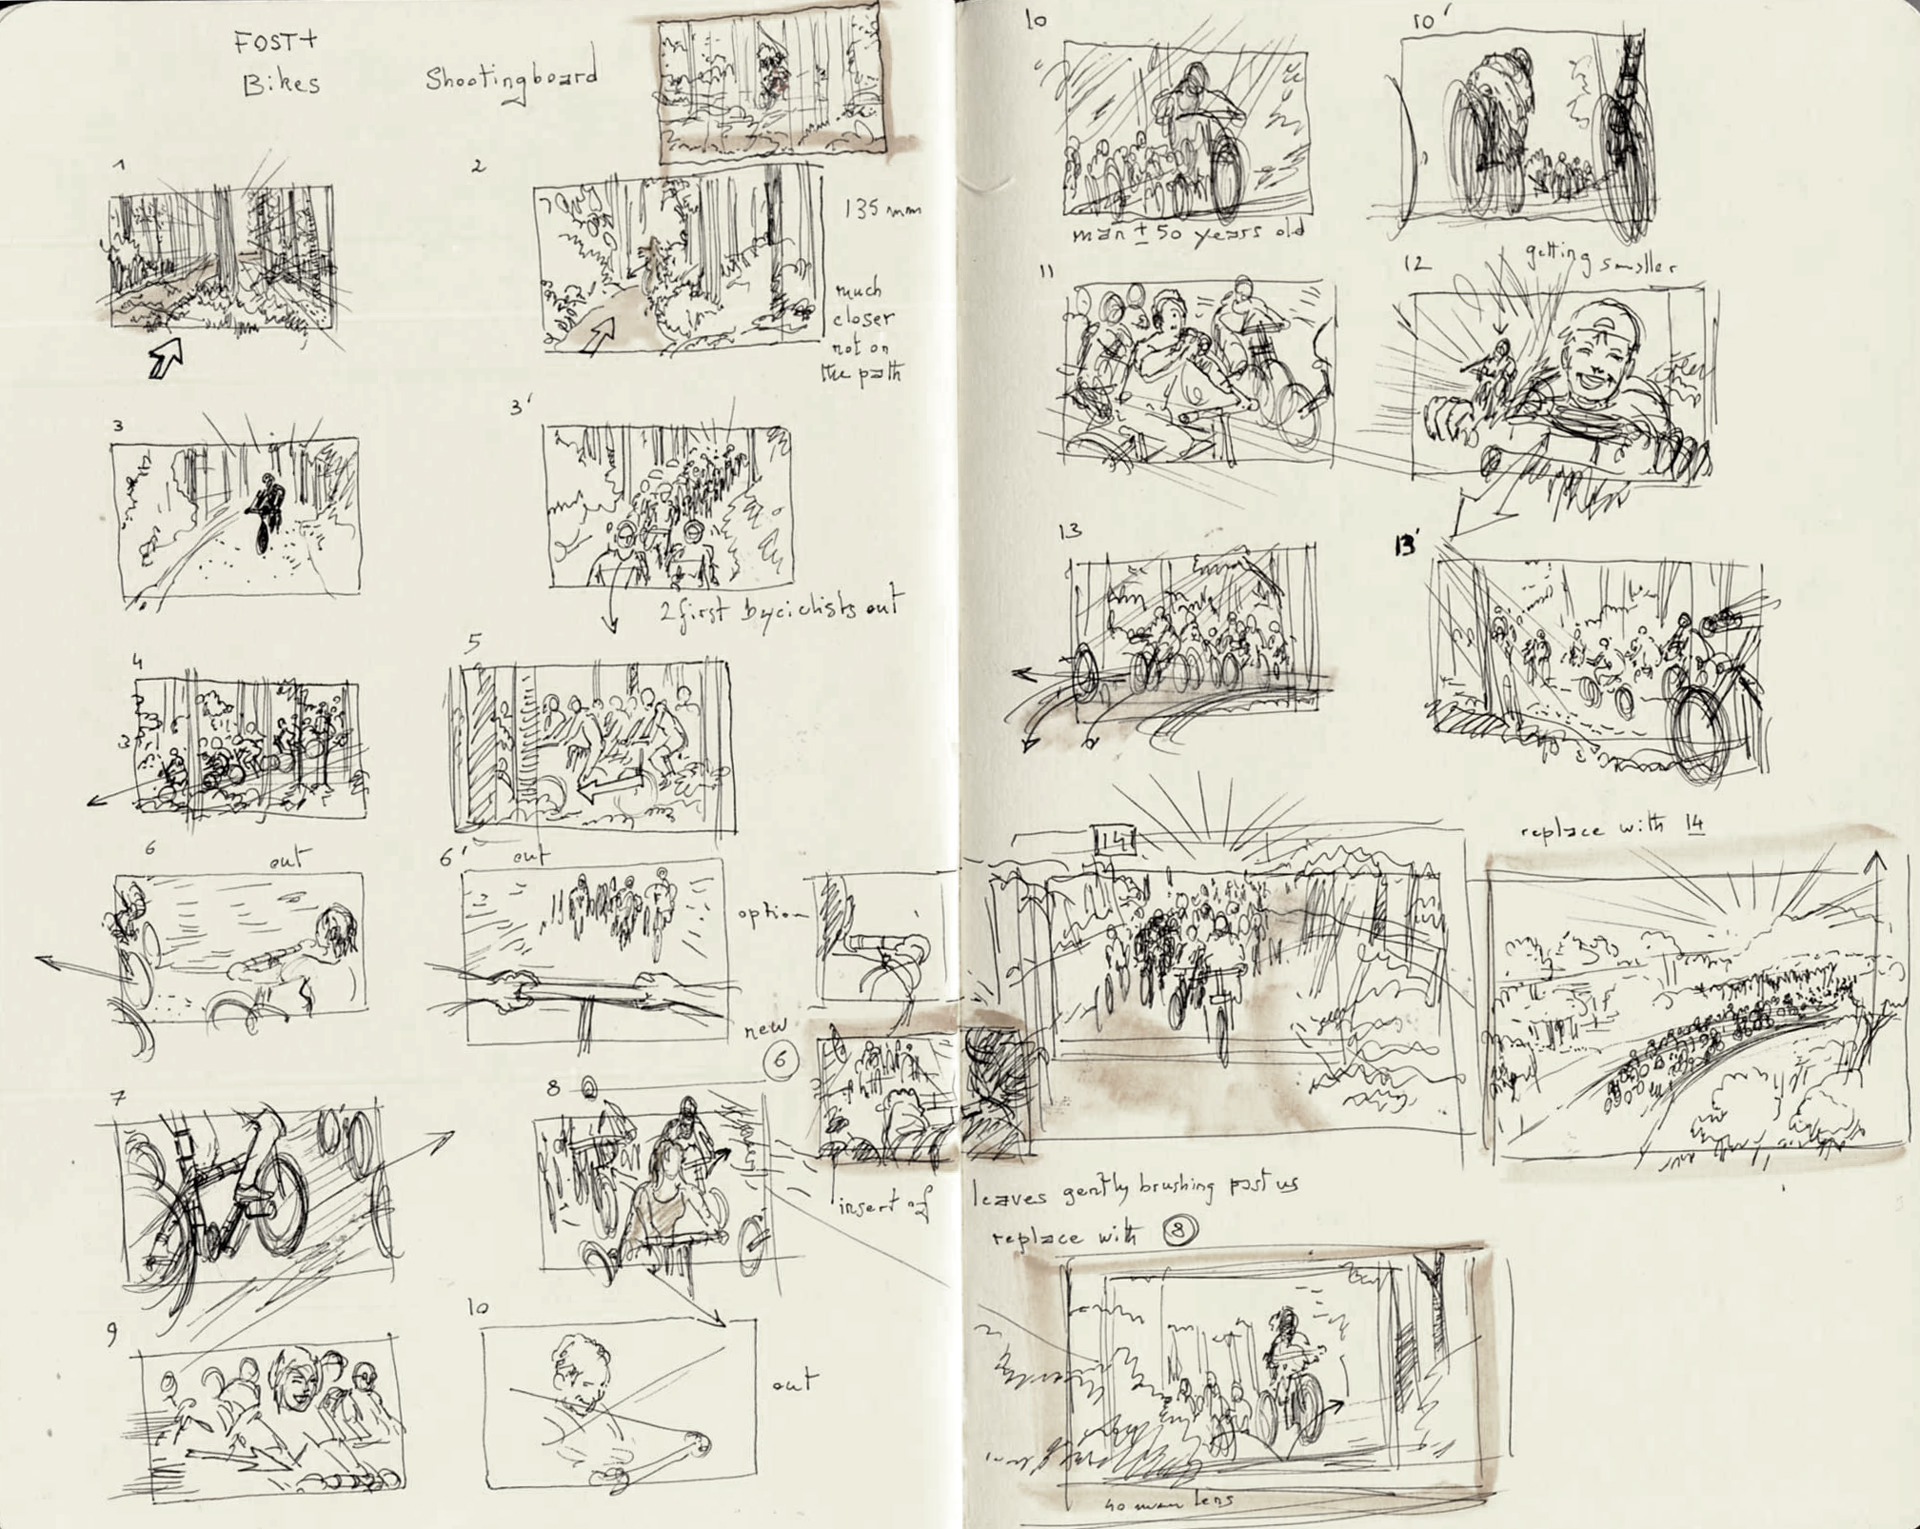 FOST+
Bikes
Shootingboard
1
2
135 mm
much
closer
not on
the path
3
3'
2 first byciclists out
4
5
6
out
6'
out
option
new
6
insert of
7
8
9
10
out
10
man ± 50 years old
10'
getting smaller
11
12
13
13'
14
replace with 14
leaves gently brushing past us
replace with 8
40 mm lens